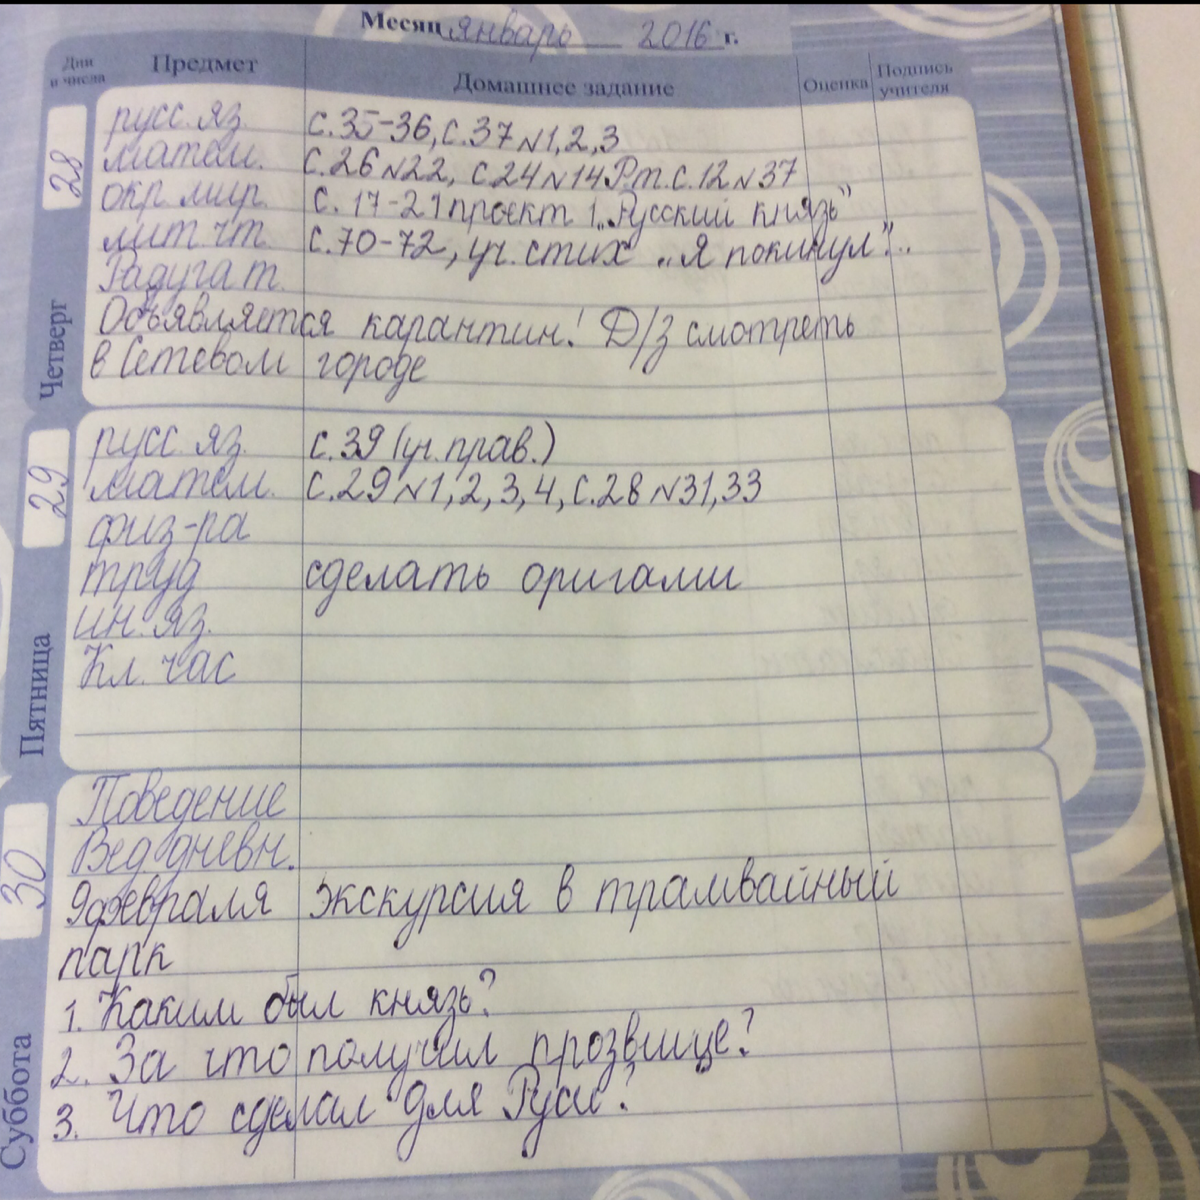 Месяц январь 2016 г.
Дни и числа Предмет Домашнее задание Оценка Подпись учителя
Четверг 28
русс. яз. с.35-36, с.37 №1,2,3
матем. с.26 №22, с.24 №14 Р.т. с.12 №37
окр. мир. с. 17-21 проект 1. „Русский князь”
лит. чт. с.70-72, уч. стих „Я покинул”...
Радуга т.
Объявляется карантин! Д/з смотреть
в Сетевом городе
Пятница 29
русс. яз. с.39 (уч. прав.)
матем. с.29 №1,2,3,4, с.28 №31,33
физ-ра
труд сделать оригами
ин. яз.
Кл. час
Суббота 30
Поведение
Вед. дневн.
9 февраля экскурсия в трамвайный
парк
1. Каким был князь?
2. За что получил прозвище?
3. Что сделал для Руси?